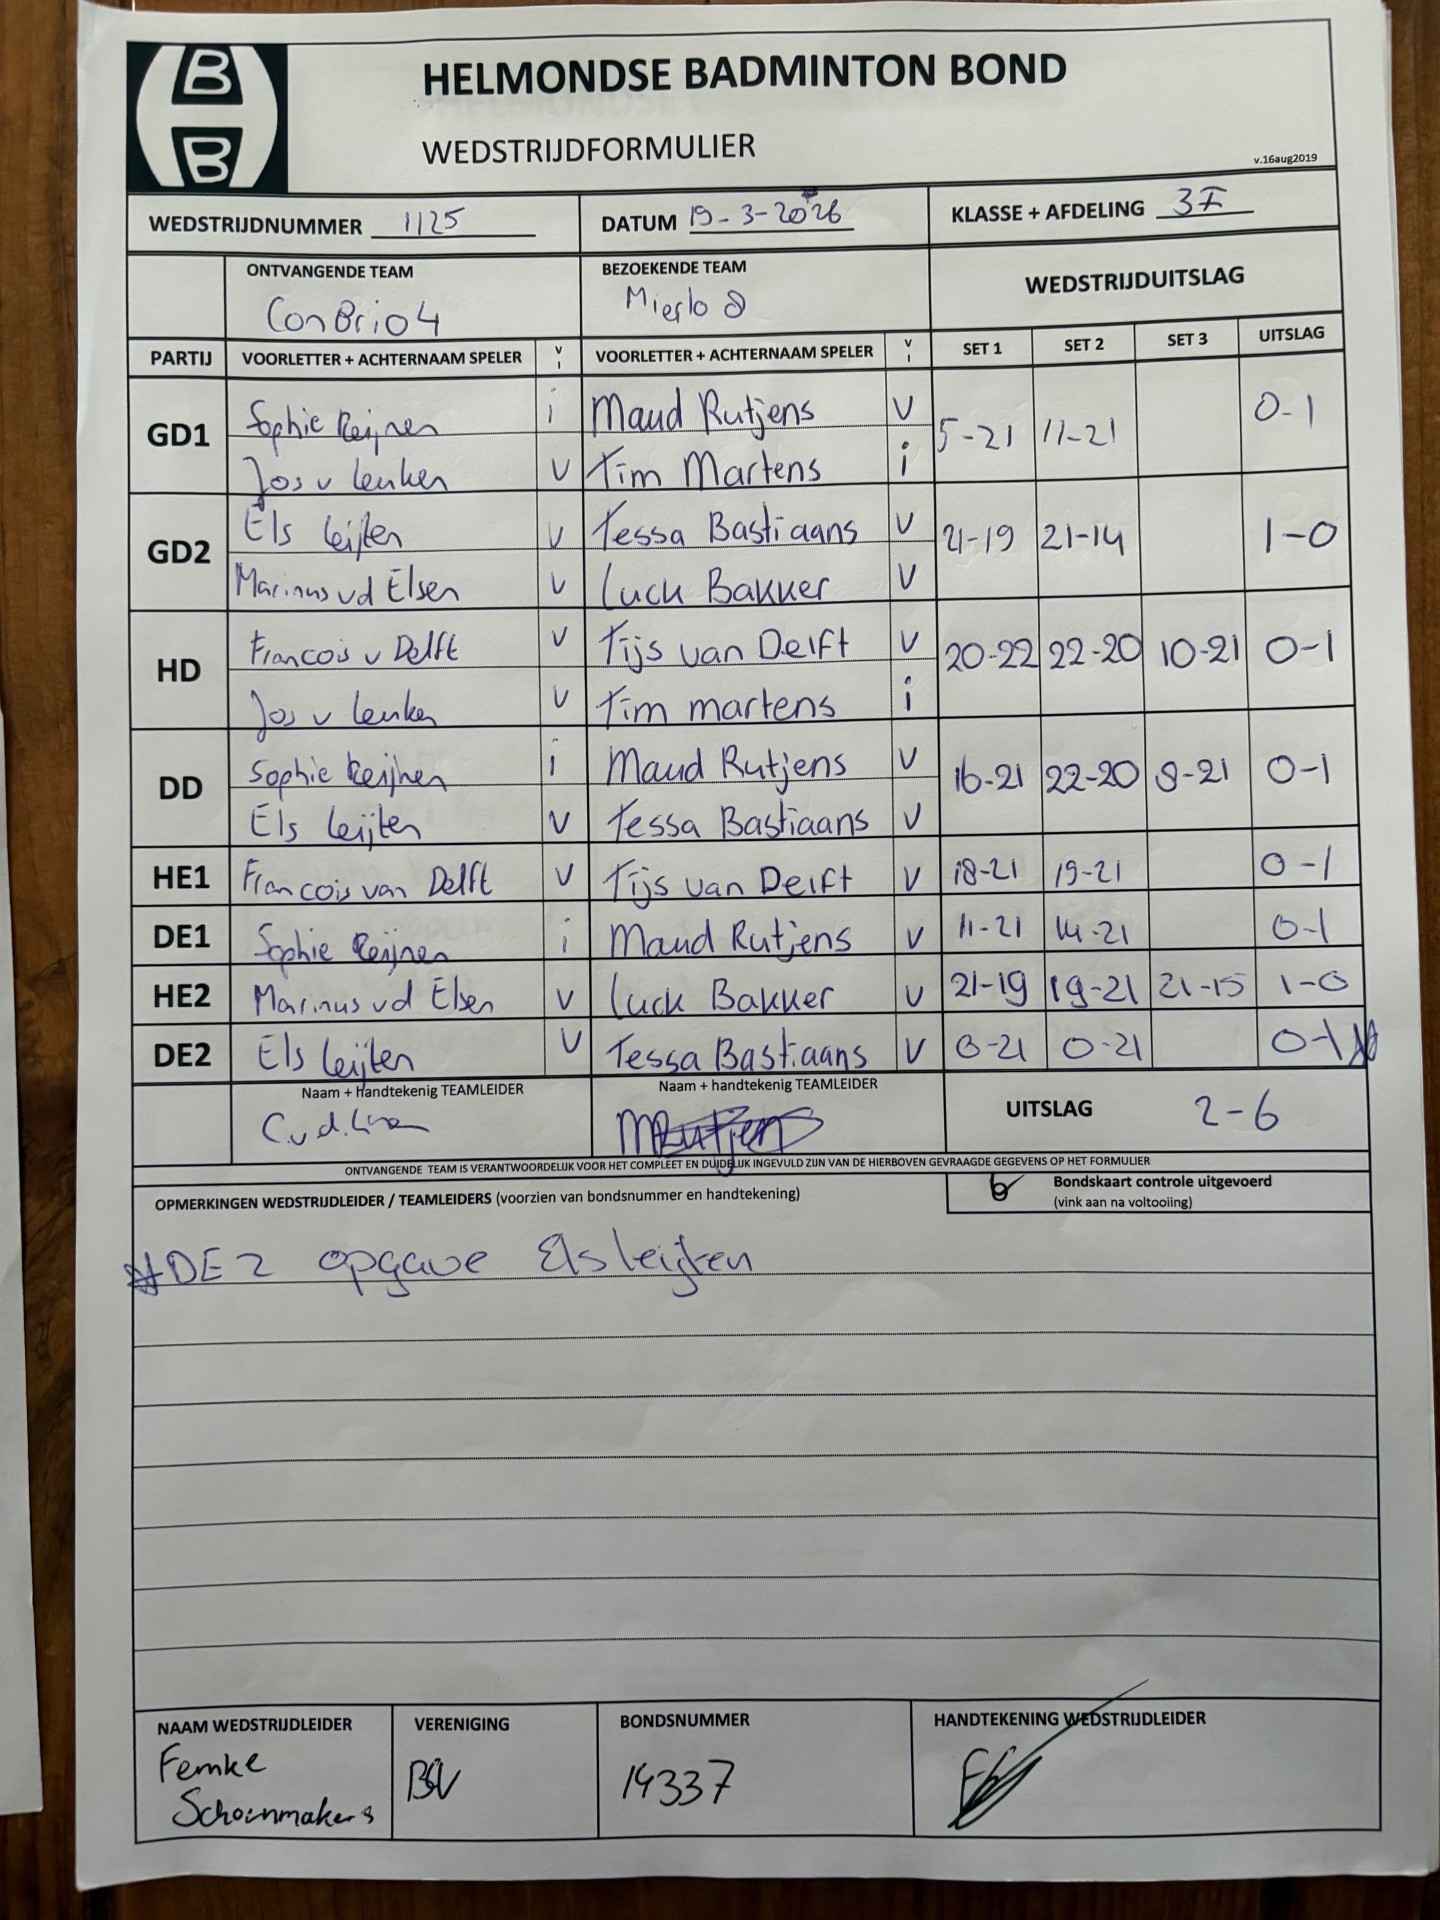 B
B
HELMONDSE BADMINTON BOND
WEDSTRIJDFORMULIER
v.16aug2019
WEDSTRIJDNUMMER 1125 DATUM 19-3-2026 KLASSE + AFDELING 3F
ONTVANGENDE TEAM BEZOEKENDE TEAM WEDSTRIJDUITSLAG
ConBrio4 Mierlo 8
PARTIJ VOORLETTER + ACHTERNAAM SPELER V I VOORLETTER + ACHTERNAAM SPELER V I SET 1 SET 2 SET 3 UITSLAG
GD1 Sophie Reijnen i Maud Rutjens V 5-21 11-21 0-1
Jos v Leuken V Tim Martens i
GD2 Els Leijten V Tessa Bastiaans V 21-19 21-14 1-0
Marinus vd Elsen V Luck Bakker V
HD Francois v Delft V Tijs van Delft V 20-22 22-20 10-21 0-1
Jos v Leuken V Tim martens i
DD Sophie Reijnen i Maud Rutjens V 16-21 22-20 9-21 0-1
Els Leijten V Tessa Bastiaans V
HE1 Francois van Delft V Tijs van Delft V 18-21 19-21 0-1
DE1 Sophie Reijnen i Maud Rutjens V 11-21 14-21 0-1
HE2 Marinus vd Elsen V Luck Bakker V 21-19 19-21 21-15 1-0
DE2 Els Leijten V Tessa Bastiaans V 0-21 0-21 0-1
Naam + handtekenig TEAMLEIDER Naam + handtekenig TEAMLEIDER UITSLAG 2-6
MRutjens
ONTVANGENDE TEAM IS VERANTWOORDELIJK VOOR HET COMPLEET EN DUIDELIJK INGEVULD ZIJN VAN DE HIERBOVEN GEVRAAGDE GEGEVENS OP HET FORMULIER
OPMERKINGEN WEDSTRIJDLEIDER / TEAMLEIDERS (voorzien van bondsnummer en handtekening) Bondskaart controle uitgevoerd
(vink aan na voltooiing)
DE2 opgave Els Leijten
NAAM WEDSTRIJDLEIDER VERENIGING BONDSNUMMER HANDTEKENING WEDSTRIJDLEIDER
Femke 14337
Schoenmakers